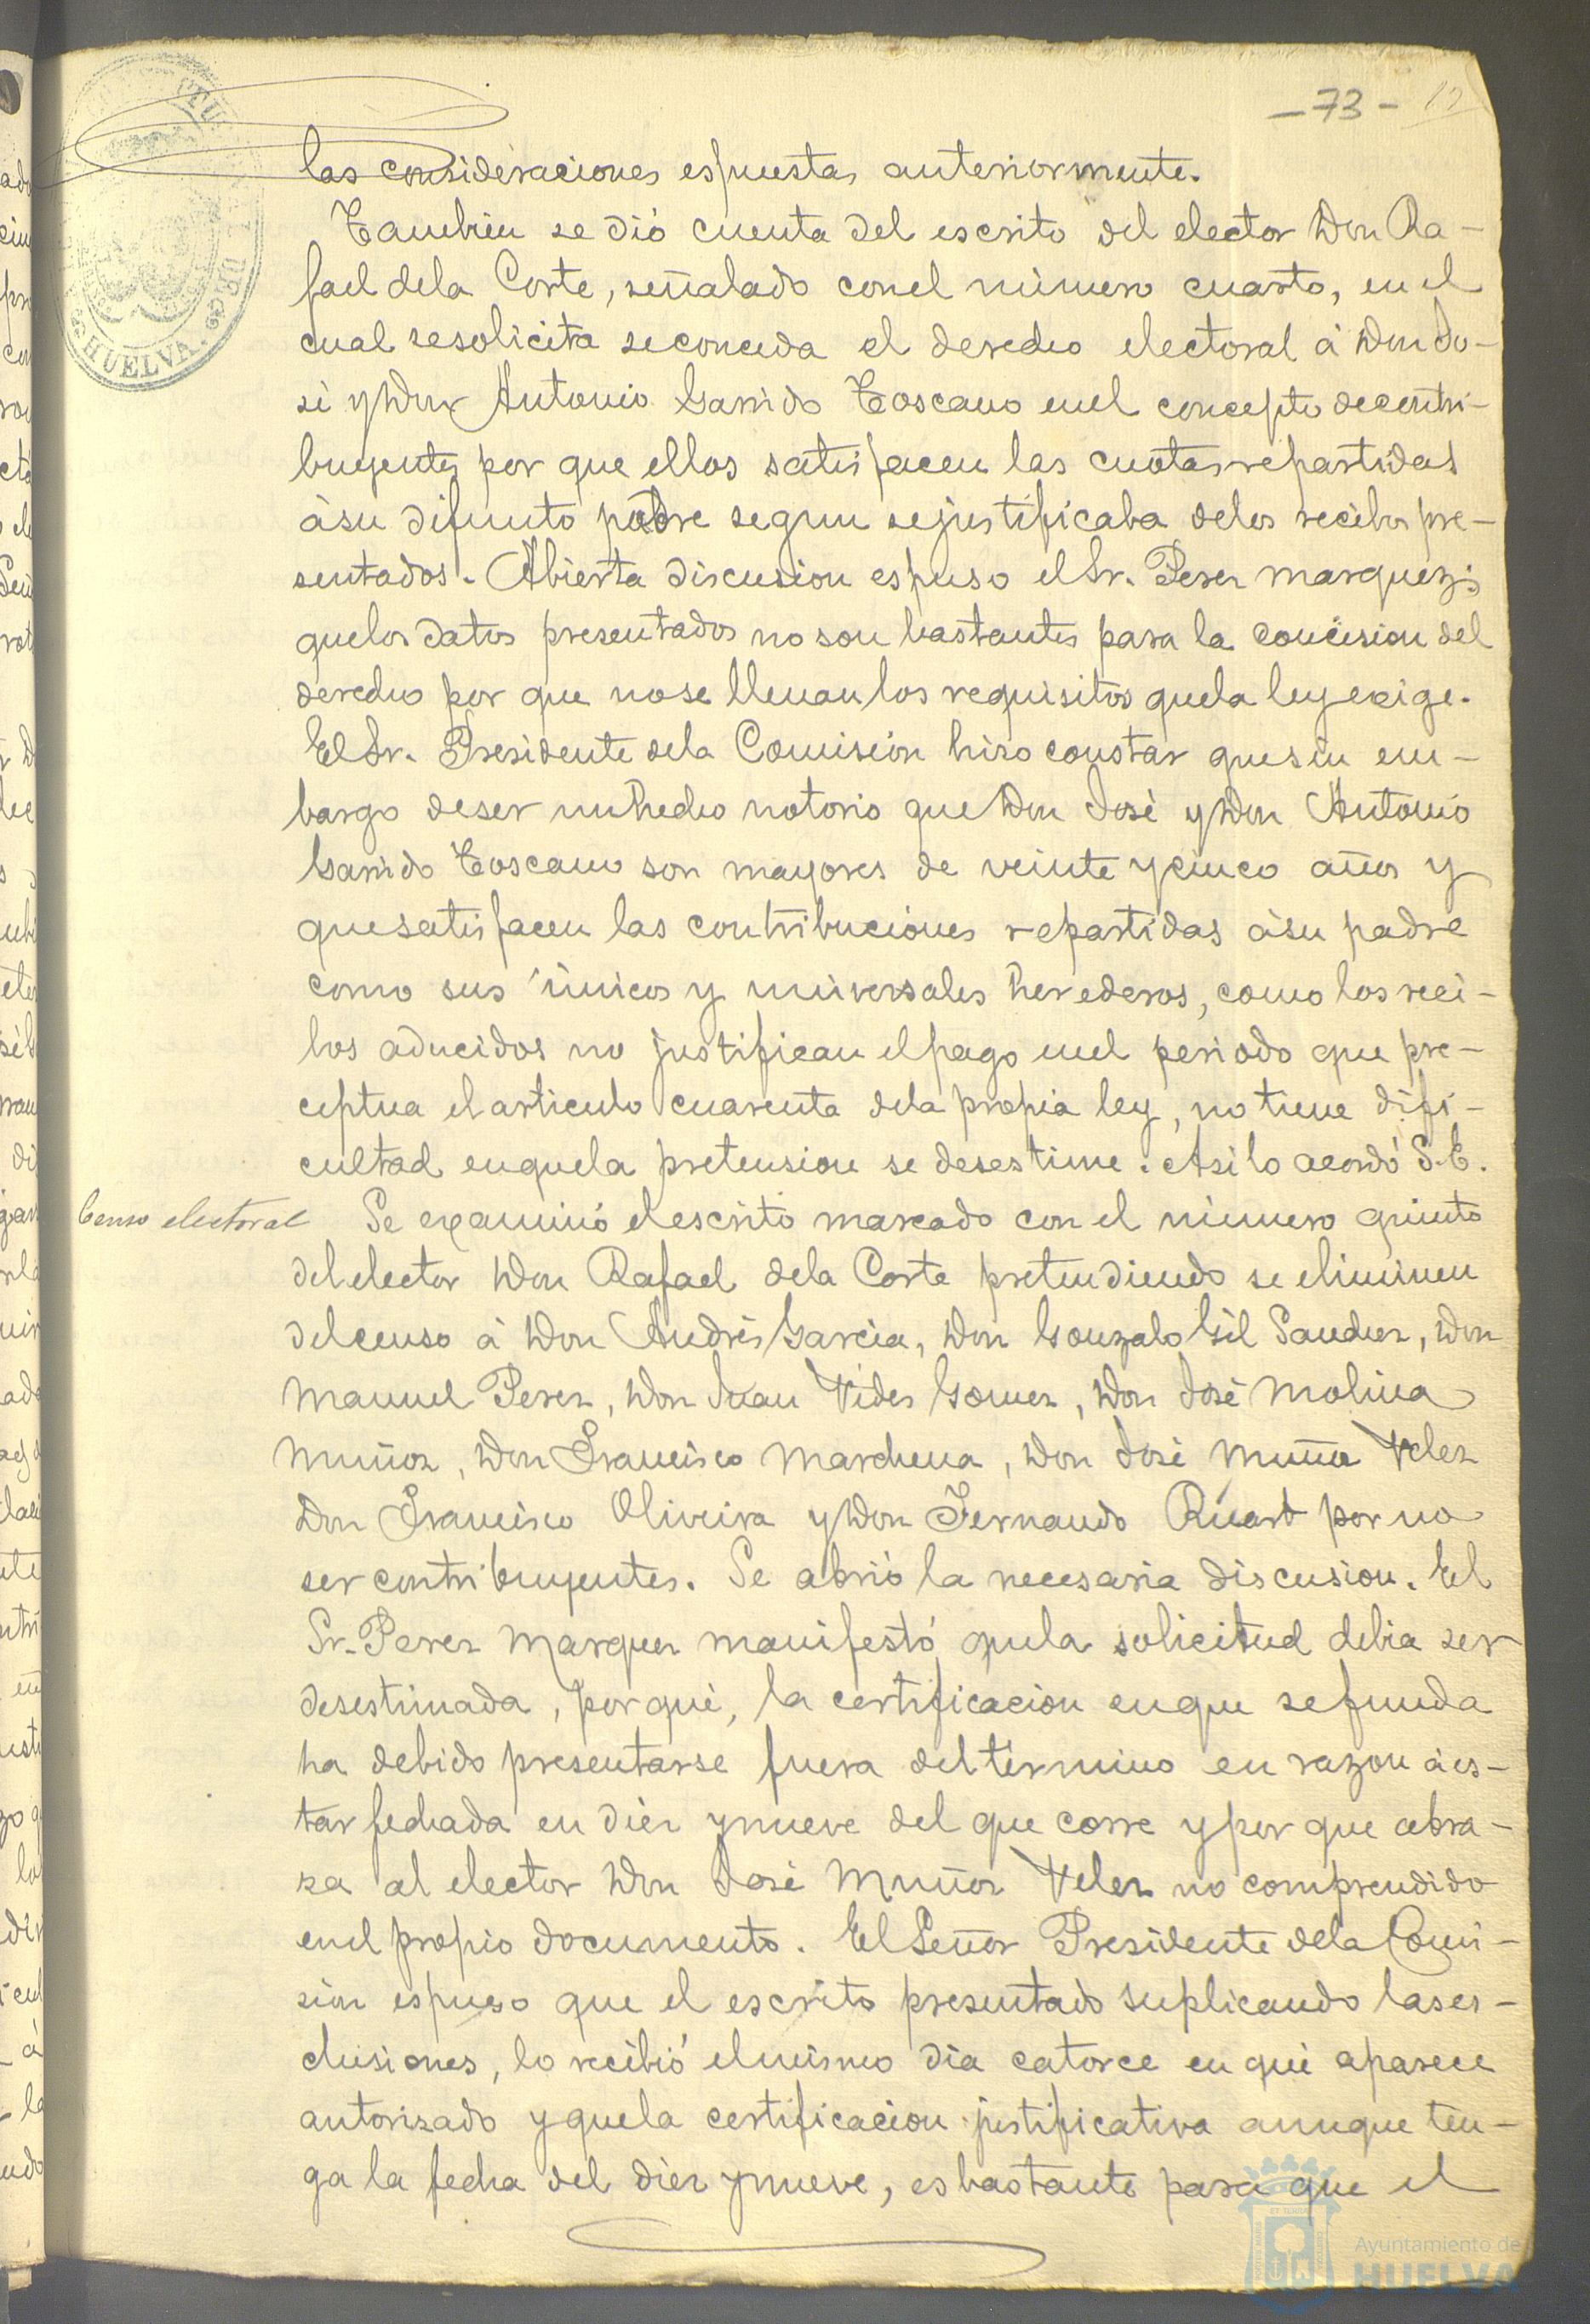 -73-
las consideraciones espuestas anteriormente.
Tambien se dió cuenta del escrito del elector Don Ra-
fael dela Corte, señalado conel número cuarto, en el
cual sesolicita seconceda el derecho electoral á Don Jo-
sé y Don Antonio Garrido Toscano enel concepto decontri-
buyentes por que ellos satisfacen las cuotas repartidas
ásu difunto padre segun sejustificaba delos recibos pre-
sentados. Abierta discusion espuso elSr. Perez Marquez;
quelos datos presentados no son bastantes para la concesion del
derecho por que nose llenan los requisitos quela ley exige.
ElSr. Presidente dela Comisión hizo constar quesin em-
bargo deser un hecho notorio que Don José y Don Antonio
Garrido Toscano son mayores de veinte y cinco años y
quesatisfacen las contribuciones repartidas ásu padre
como sus únicos y universales herederos, como los reci-
bos aducidos no justifican elpago enel periodo que pre-
ceptua el articulo cuarenta dela propia ley, no tiene difi-
cultad enquela pretension se desestime. Asi lo acordó S.E.
Censo electoral
Se examinó elescrito marcado con el número quinto
del elector Don Rafael dela Corte pretendiendo se eliminen
delcenso á Don Andrés Garcia, Don Gonzalo Gil Sanchez, Don
Manuel Perez, Don Juan Vides Gomez, Don José Molina
Muñoz, Don Francisco Marchena, Don José Muñoz Velez
Don Francisco Oliveira y Don Fernando Ricart por no
ser contribuyentes. Se abrió la necesaria discusion. El
Sr. Perez Marquez manifestó quela solicitud debia ser
desestimada, por qué, la certificacion enque sefunda
ha debido presentarse fuera deltérmino en razon áes-
tar fechada en diez ynueve del que corre y por que abra-
za al elector Don José Muñoz Velez no comprendido
enel propio documento. El Señor Presidente dela Comi-
sion espuso que el escrito presentado suplicando lases-
clusiones, lo recibió elmismo dia catorce en qué aparece
autorizado y quela certificacion justificativa aunque ten-
ga la fecha del diez ynueve, es bastante para que el
HUELVA.
Ayuntamiento de
HUELVA